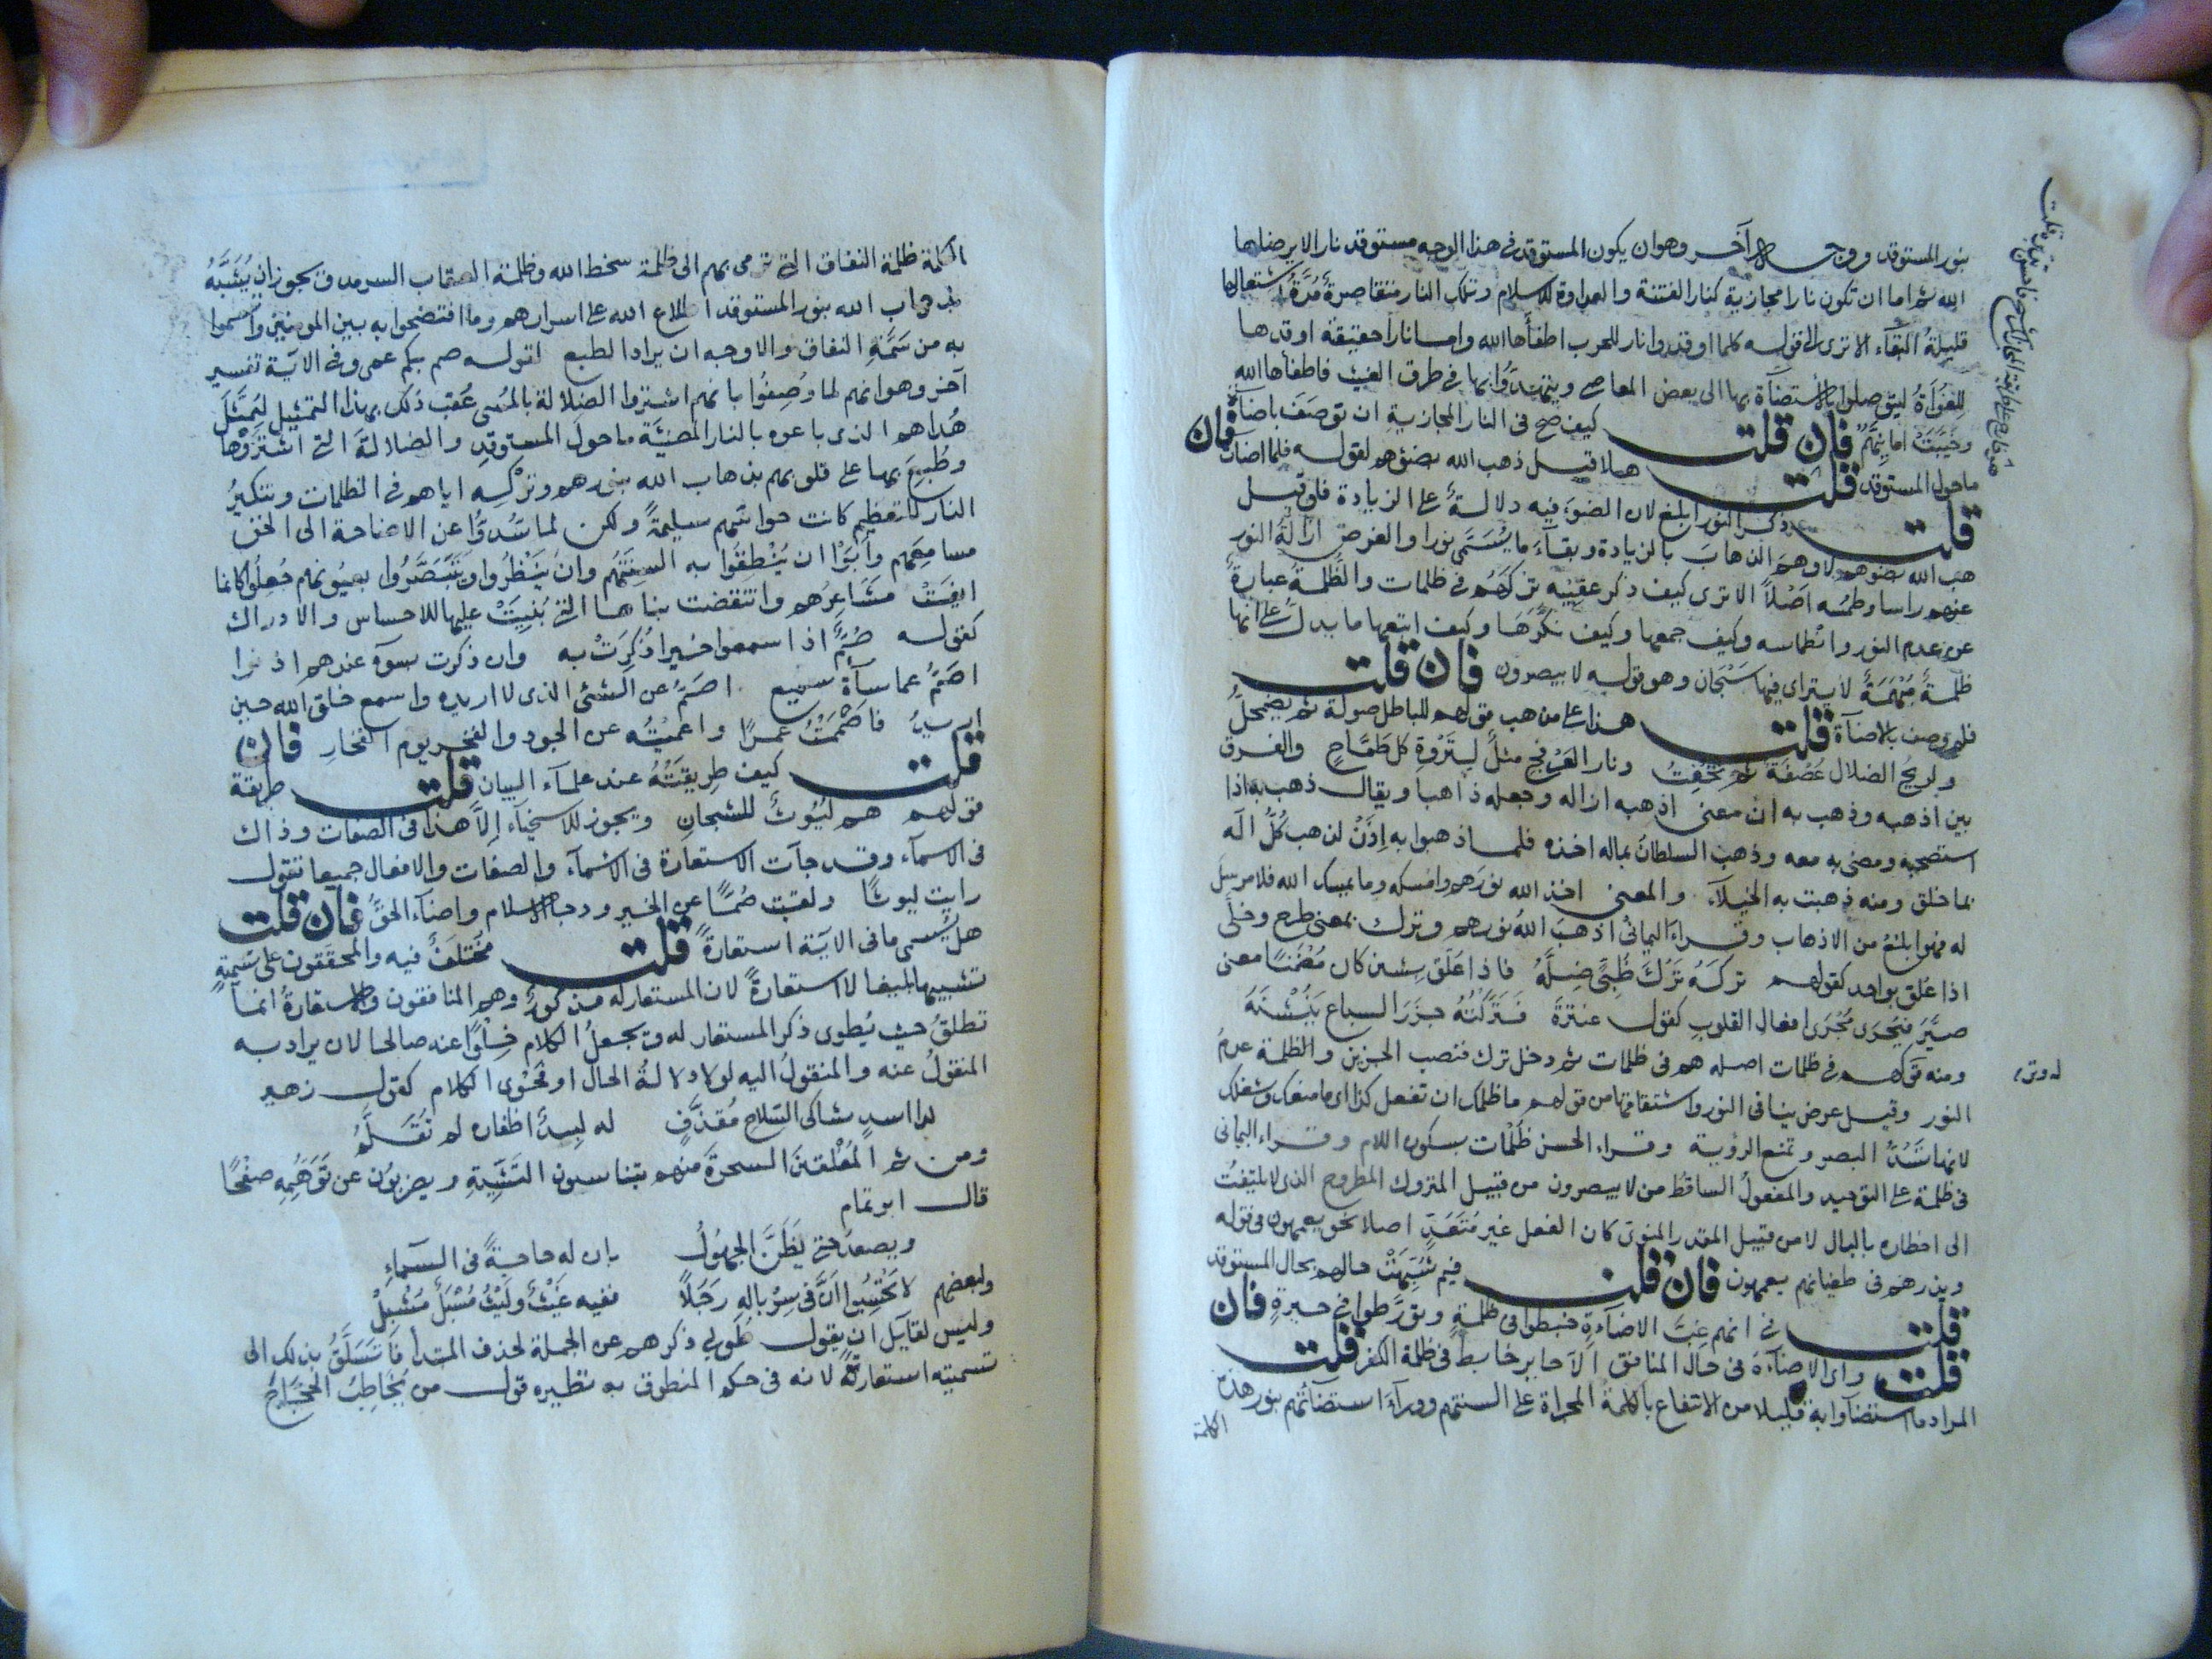 بنور المستوقد ووجه آخر وهو ان يكون المستوقد فى هذا الوجه مستوقد نار لا يرضاها
الله ثم اما ان تكون نارا مجازية كنار الفتنة والعداوة للاسلام وتلك النار متقاصرة مدة اشتعالها
قليلة البقاء الا ترى الى قوله كلما اوقدوا نار للحرب اطفأها الله واما نارا حقيقة اوقدها
الغواة ليتوصلوا بالاستضآة بها الى بعض المعاصى ويتهدوا بها فى طرق العبث فاطفأها الله
وخيبت امانيهم فان قلت كيف صح فى النار المجازية ان توصف باضآة
ما حول المستوقد قلت هلا قيل ذهب الله بضوءهم لقوله فلما اضآت فان
قلت ذكر النور ابلغ لان الضوء فيه دلالة على الزيادة فلو قيل
ذهب الله بضوءهم لاوهم الذهاب بالزيادة وبقآء ما يسمى نورا والغرض ازالة النور
عنهم راسا وطمسه اصلا الا ترى كيف ذكر عقيبه تركهم فى ظلمات والظلمة عبارة
عن عدم النور وانطماسه وكيف جمعها وكيف نكرها وكيف اتبعها ما يدل على انها
ظلمة مبهمة لا يتراى فيها شبحان وهو قوله لا يبصرون فان قلت
فلم وصف بالاضآة قلت هذا على مذهب قولهم للباطل صولة ثم يضمحل
ولريح الضلال عصفة ثم تخفت ونار العرفج مثل لنزوة كل طماح والفرق
بين اذهبه وذهب به ان معنى اذهبه ازاله وجعله ذاهبا ويقال ذهب به اذا
استصحبه ومضى به معه وذهب السلطان بماله اخذه فلما ذهبوا به اذن لذهب كل اله
بما خلق ومنه ذهبت به الخيلآء والمعنى اخذ الله نورهم وامسكه وما يمسك الله فلا مرسل
له فهو ابلغ من الاذهاب وقراء اليمانى اذهب الله نورهم وترك بمعنى طرح وخلى
اذا علق بواحد كقولهم تركه ترك ظبى ظله فاذا علق بشيئين كان مضمنا معنى
صير فيجرى مجرى افعال القلوب كقول عنترة فتركته جزر السباع ينشنه
ومنه قوله وتركهم فى ظلمات اصله هم فى ظلمات ثم دخل ترك فنصب الجزين والظلمة عدم
النور وقيل عرض ينافى النور واشتقاقها من قولهم ما ظلمك ان تفعل كذا اى ما منعك وشغلك
لانها تسد البصر وتمنع الرؤية وقراء الحسن ظلمات بسكون اللام وقراء اليمانى
فى ظلمة على التوحيد والمفعول الساقط من لا يبصرون من قبيل المتروك المطروح الذى لا يلتفت
الى اخطاره بالبال لا من قبيل المقدر المنوى كان الفعل غير متعد اصلا نحو يعمهون فى قوله
ويذرهم فى طغيانهم يعمهون فان قلت فيم شبهت حالهم بحال المستوقد
قلت فى انهم غب الاضاءة خبطوا فى ظلمة وتورطوا فى حيرة فان
قلت واى الاضآءة فى حال المنافق الا حاير خابط فى ظلمة الكفر قلت
المراد ما استضآوا به قليلا من الانتفاع بالكلمة المجراة على السنتهم وورآء استضآتهم بنور هذه
الكلمة
الكلمة ظلمة النفاق التى ترمى بهم الى ظلمة سخط الله وظلمة العقاب السرمد ويجوز ان يشبه
ذهاب الله بنور المستوقد اطلاع الله على اسرارهم وما افتضحوا به بين المومنين واتسموا
به من سمة النفاق والاوجه ان يراد الطبع لقوله صم بكم عمى وفى الاية تفسير
آخر وهو انهم لما وصفوا بانهم اشتروا الضلالة بالهدى عقب ذلك بهذا التمثيل ليمثل
هداهم الذى باعوه بالنار المضيئة ما حول المستوقد والضلالة التى اشتروها
وطبع بها على قلوبهم بذهاب الله بنورهم وتركه اياهم فى الظلمات وتنكير
النار للتعظيم كانت حواسهم سليمة ولكن لما سدوا عن الاصاخة الى الحق
مسامعهم وابوا ان ينطقوا به السنتهم وان ينظروا ويتبصروا بعيونهم جعلوا كانما
ايفت مشاعرهم وانتقضت بناها التى بنيت عليها للاحساس والادراك
كقوله صم اذا سمعوا خيرا ذكرت به وان ذكرت بسوء عندهم اذنوا
اصم عما سآة سميع اصم عن الشئ الذى لا اريده واسمع خلق الله حين
اريد فاصممت عمرا واعميته عن الجود والفخر يوم الفخار فان
قلت كيف طريقته عند علمآء البيان قلت طريقة
قولهم هم ليوث للشجعان وبحور للاسخيآء الا هذا فى الصفات وذاك
فى الاسمآء وقد جآت الاستعارة فى الاسمآء والصفات والافعال جميعا تقول
رايت ليوثا ولقيت صما عن الخير ودجا الاسلام واضآء الحق فان قلت
هل يسمى ما فى الاية استعارة قلت مختلف فيه والمحققون على تسميته
تشبيها بليغا لا استعارة لان المستعار له مذكور وهم المنافقون والاستعارة انما
تطلق حيث يطوى ذكر المستعار له ويجعل الكلام خلوا عنه صالحا لان يراد به
المنقول عنه والمنقول اليه لولا دلالة الحال او فحوى الكلام كقول زهير
لدا اسد شاكى السلاح مقذف له لبد اظفاره لم تقلم
ومن ثم المفلقين السحرة منهم يتناسون التشبيه ويضربون عن توهمه صفحا
قال ابو تمام
ويصعد حتى يظن الجهول بان له حاجة فى السمآء
ولبعضهم لا تحسبوا ان فى سرباله رجلا ففيه غيث وليث مسبل مشبل
وليس لقايل ان يقول طوى ذكرهم عن الجملة لحذف المبتدأ فاتسلق بذلك الى
تسميته استعارة لانه فى حكم المنطوق به نظيره قول من يخاطب الحجاج